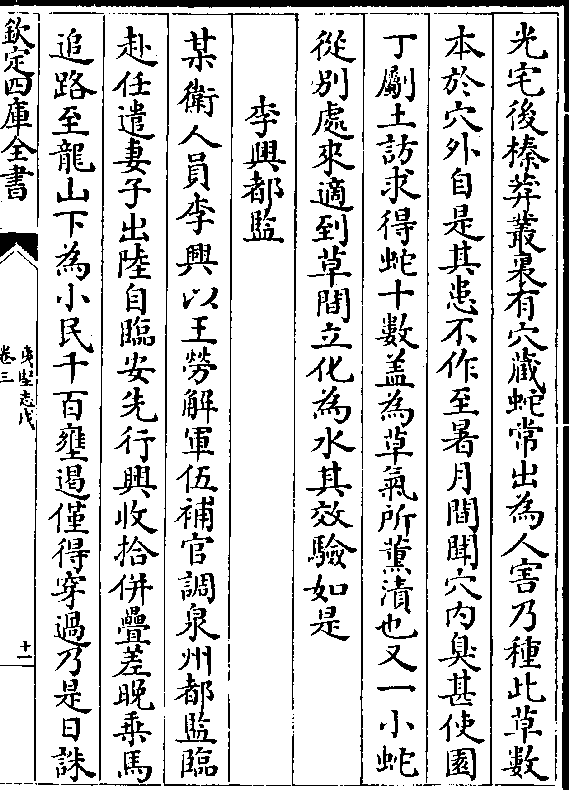 光宅後榛莽叢裏有穴藏蛇常出為人害乃種此草數
本於穴外自是其患不作至暑月間聞穴内臭甚使園
丁劚土訪求得蛇十數盖為草氣所薰漬也又一小蛇
從别處來適到草間立化為水其效驗如是
李興都監
某衛人員李興以王勞解軍伍補官調泉州都監臨
赴任遣妻子出陸自臨安先行興收拾併疊差晚乗馬
追路至龍山下為小民千百壅遏僅得穿過乃是日誅
欽定四庫全書
夷堅志戊
卷三
十一